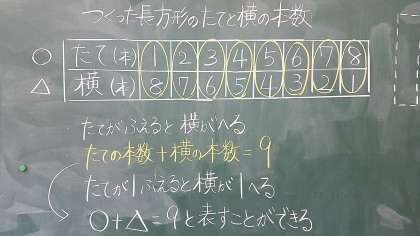 つくった長方形のたてと横の本数
○ たて(本) 1 2 3 4 5 6 7 8
△ 横(本) 8 7 6 5 4 3 2 1
・たてがふえると横がへる
たての本数+横の本数=9
たてが1ふえると横が1へる
○+△=9と表すことができる